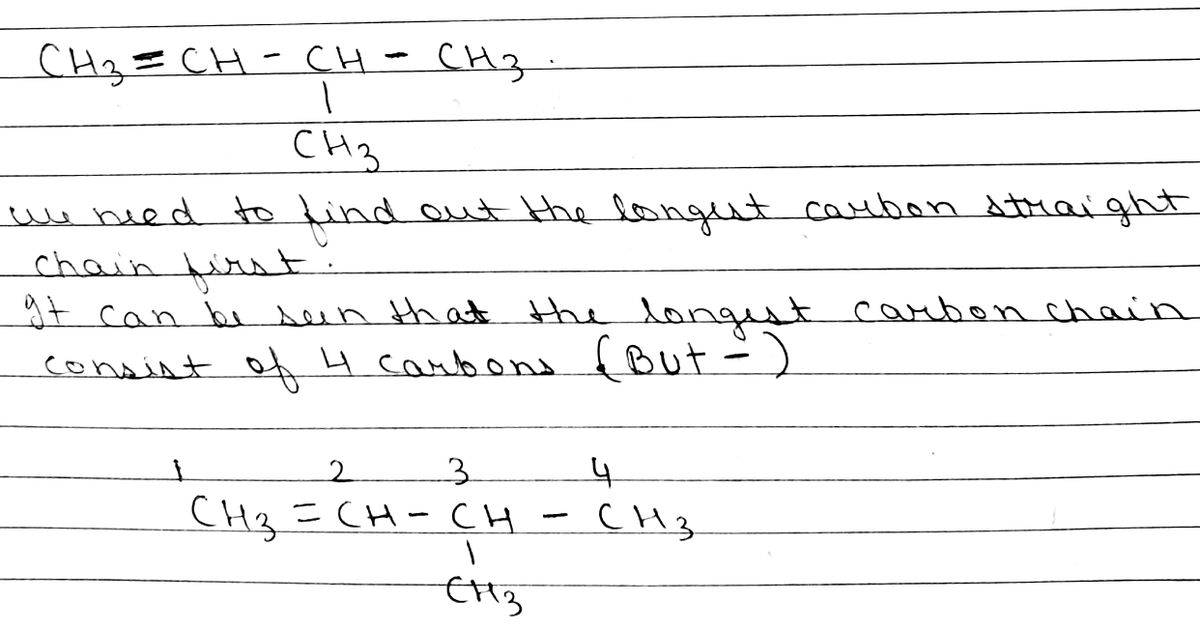 CH3 = CH - CH - CH3.
|
CH3
we need to find out the longest carbon straight
chain first.
It can be seen that the longest carbon chain
consist of 4 carbons (But-)
1 2 3 4
CH3 = CH - CH - CH3
|
CH3